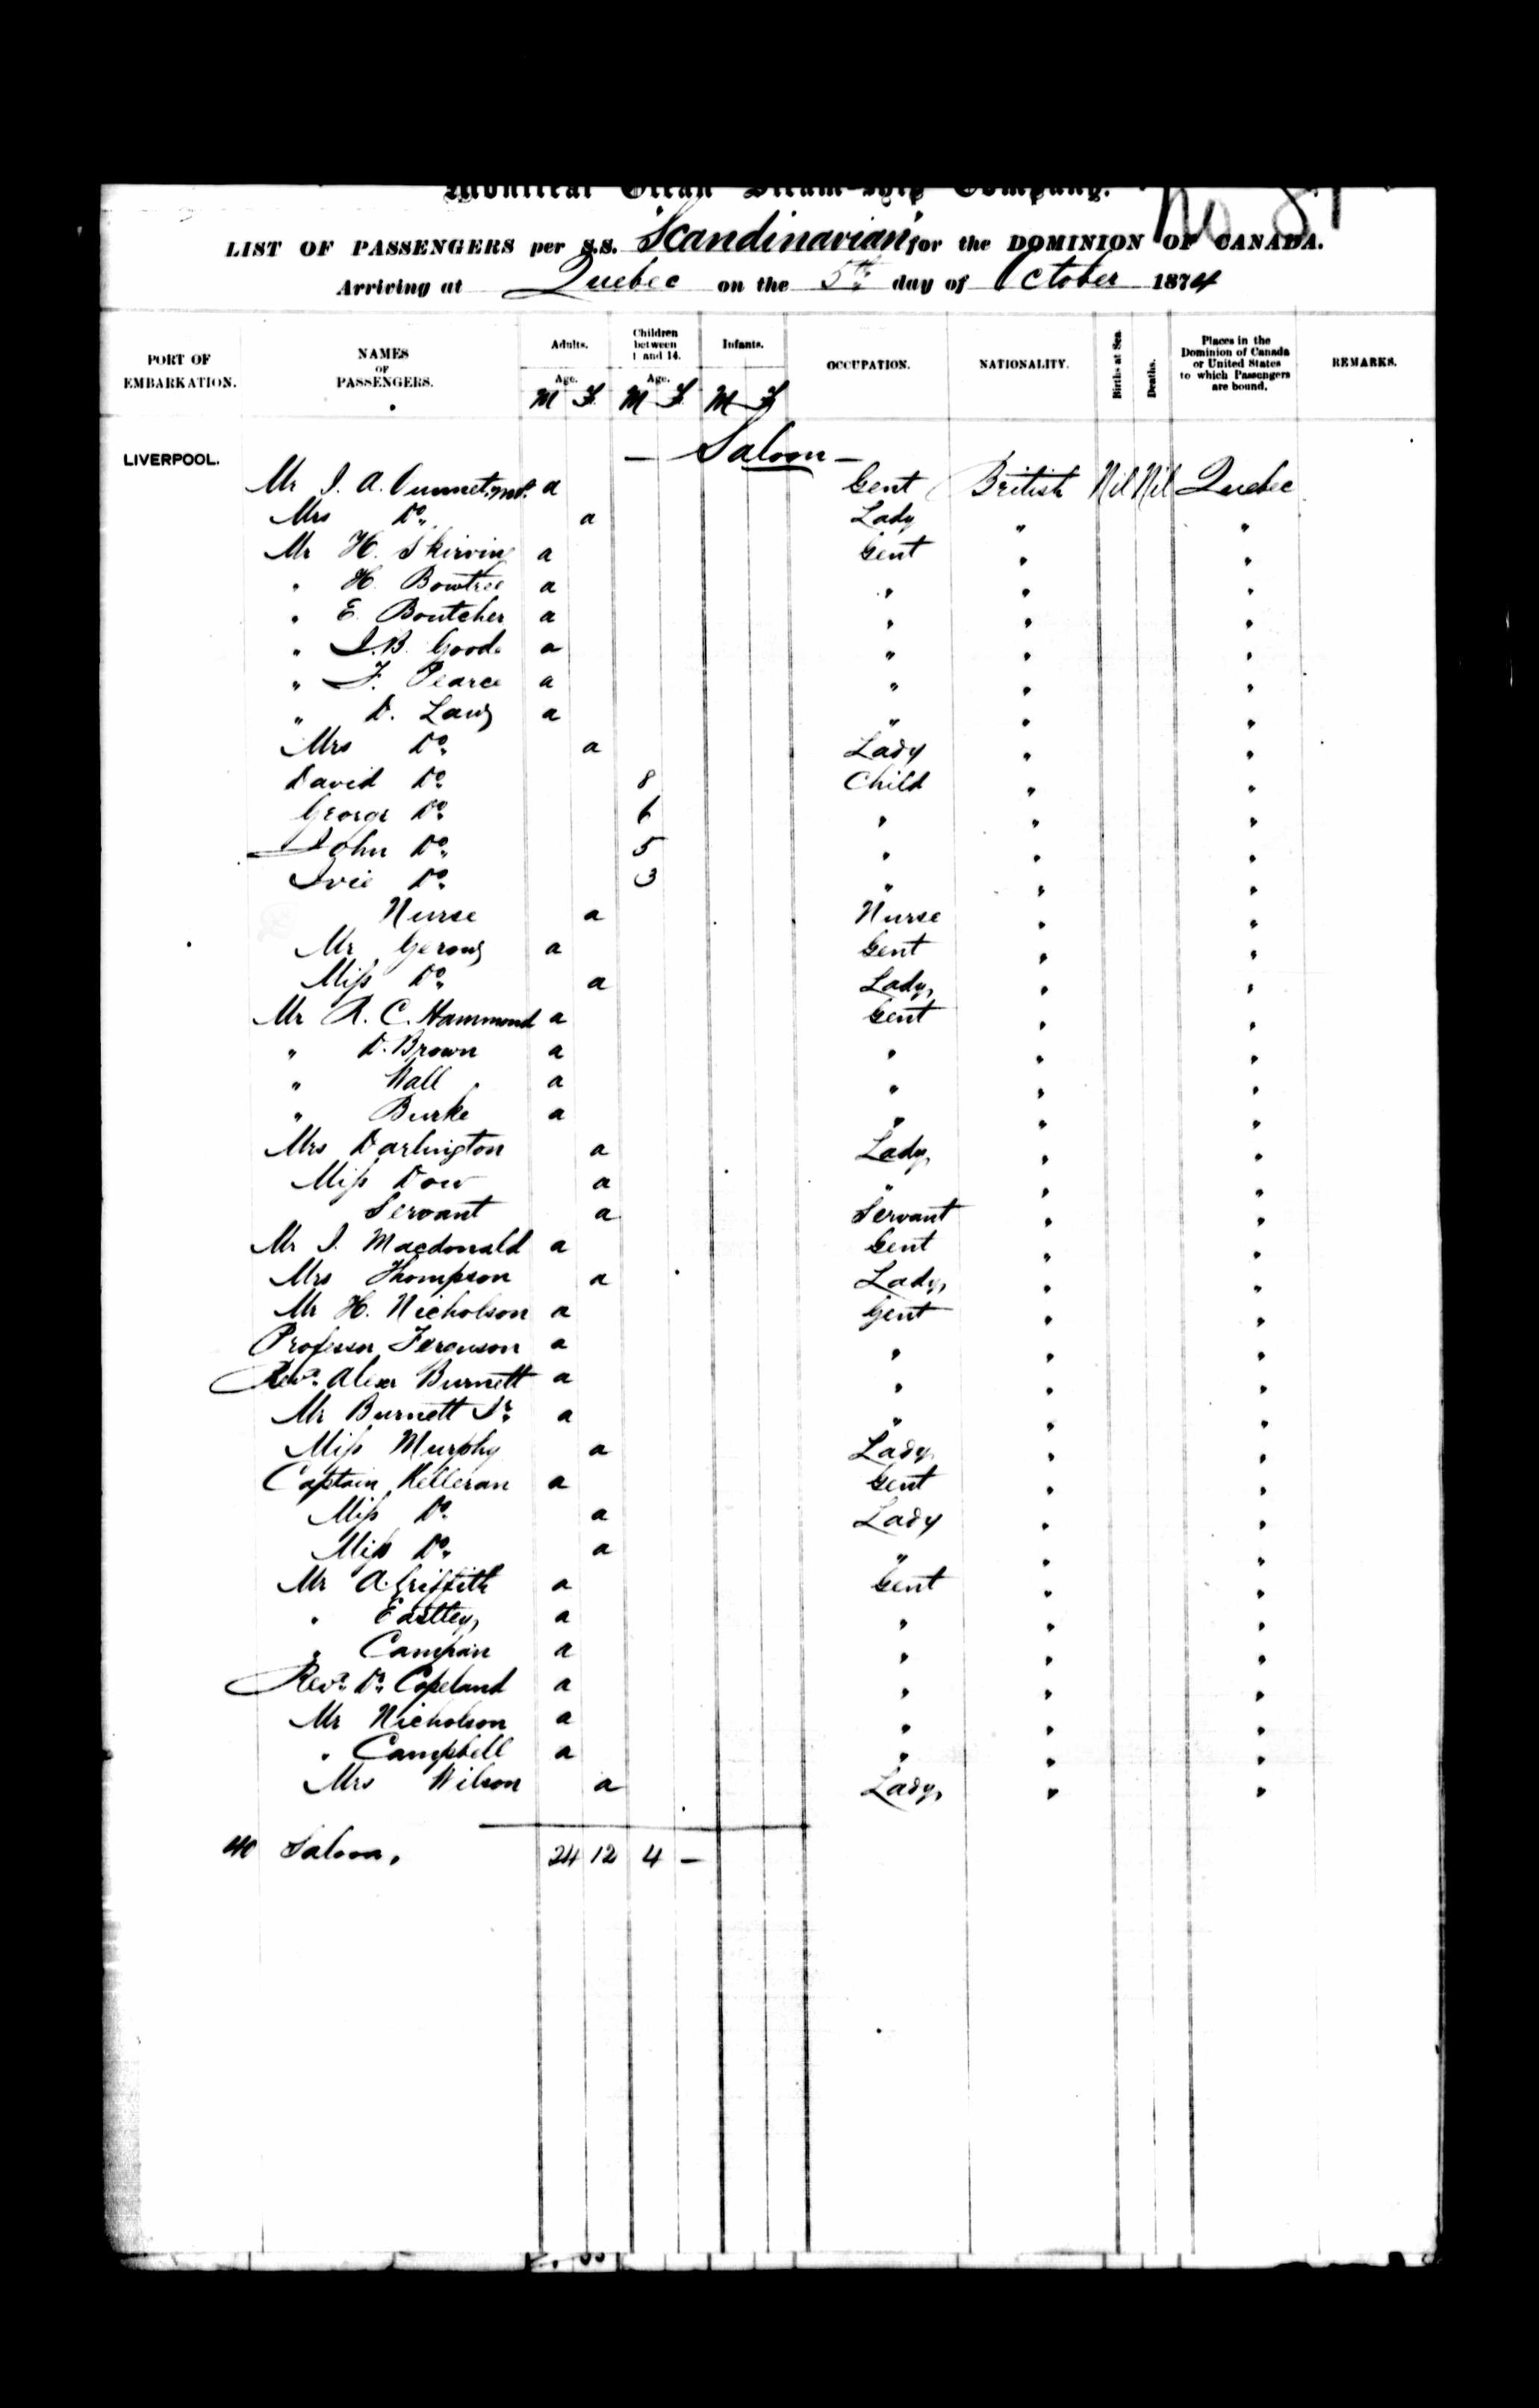 Montreal Ocean Steam-Ship Company.
LIST OF PASSENGERS per S.S. "Scandinavian" for the DOMINION OF CANADA.
Arriving at Quebec on the 5th day of October 1874
PORT OF EMBARKATION. NAMES OF PASSENGERS. Adults. Age. M F Children between 1 and 14. Age. M F Infants. M F OCCUPATION. NATIONALITY. Births at Sea Deaths. Places in the Dominion of Canada or United States to which Passengers are bound. REMARKS.
LIVERPOOL. — Saloon —
Mr J. A. a Gent British Nil Nil Quebec
Mrs Do. a Lady " "
Mr H. Skirving a Gent " "
" H. Bowtree a " " "
" E. Boutcher a " " "
" J. B. Goode a " " "
" F. Pearce a " " "
" D. Laws a " " "
Mrs Do. a Lady " "
David Do. 8 Child " "
George Do. 6 " " "
John Do. 5 " " "
Ivie Do. 3 " " "
Nurse a Nurse " "
Mr a Gent " "
Miss Do. a Lady, " "
Mr R. C. Hammond a Gent " "
" D. Brown a " " "
" Wall a " " "
" Burke a " " "
Mrs Darlington a Lady, " "
Miss Dow a " " "
Servant a Servant " "
Mr J. Macdonald a Gent " "
Mrs Thompson a Lady, " "
Mr H. Nicholson a Gent " "
Professor Ferguson a " " "
Revd. Alexr Burnett a " " "
Mr Burnett Jr. a " " "
Miss Murphy a Lady " "
Captain Kelleran a Gent " "
Miss Do. a Lady " "
Miss Do. a " " "
Mr A. Griffith a Gent " "
" Eastley, a " " "
" Campain a " " "
Revd. Dr. Copeland a " " "
Mr Nicholson a " " "
" Campbell a " " "
Mrs Wilson a Lady, " "
40 Saloon. 24 12 4 —